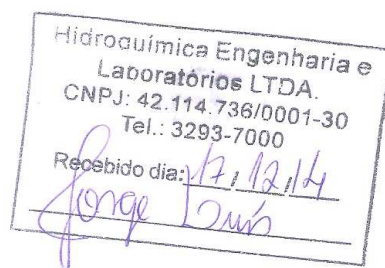 Hidroquímica Engenharia e
Laboratórios LTDA.
CNPJ: 42.114.736/0001-30
Tel.: 3293-7000
Recebido dia: 17, 12, 14
Jorge Luís